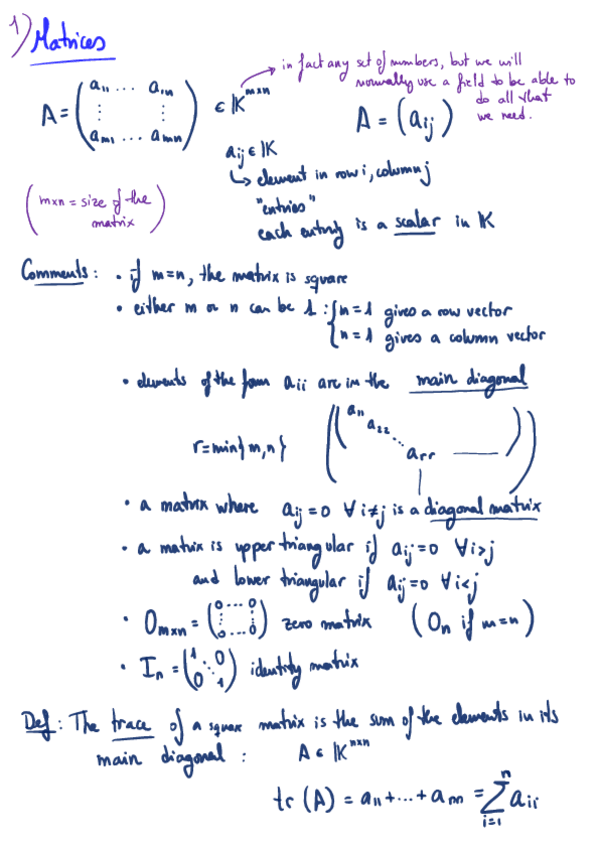 1) Matrices
in fact any set of numbers, but we will
normally use a field to be able to
do all that
we need.
A = (a₁₁ ... a₁ₙ ⋮ ⋮ aₘ₁ ... aₘₙ) ∈ 𝕂ᵐˣⁿ
A = (aᵢⱼ)
aᵢⱼ ∈ 𝕂
↳ element in row i, column j
"entries"
each entry is a scalar in 𝕂
(m×n = size of the
matrix)
Comments: • if m=n, the matrix is square
• either m or n can be 1 : { m=1 gives a row vector
n=1 gives a column vector
• elements of the form aᵢᵢ are in the main diagonal
r=min{m,n} ((a₁₁ a₂₂ ⋱ aᵣᵣ))
• a matrix where aᵢⱼ=0 ∀i≠j is a diagonal matrix
• a matrix is upper triangular if aᵢⱼ=0 ∀i>j
and lower triangular if aᵢⱼ=0 ∀i<j
• Oₘₓₙ = (0 ... 0 ⋮ ⋮ 0 ... 0) zero matrix (Oₙ if m=n)
• Iₙ = (1 0 ⋱ 0 1) identity matrix
Def: The trace of a square matrix is the sum of the elements in its
main diagonal: A ∈ 𝕂ⁿˣⁿ
tr(A) = a₁₁+...+aₙₙ = ∑ⁿᵢ₌₁ aᵢᵢ